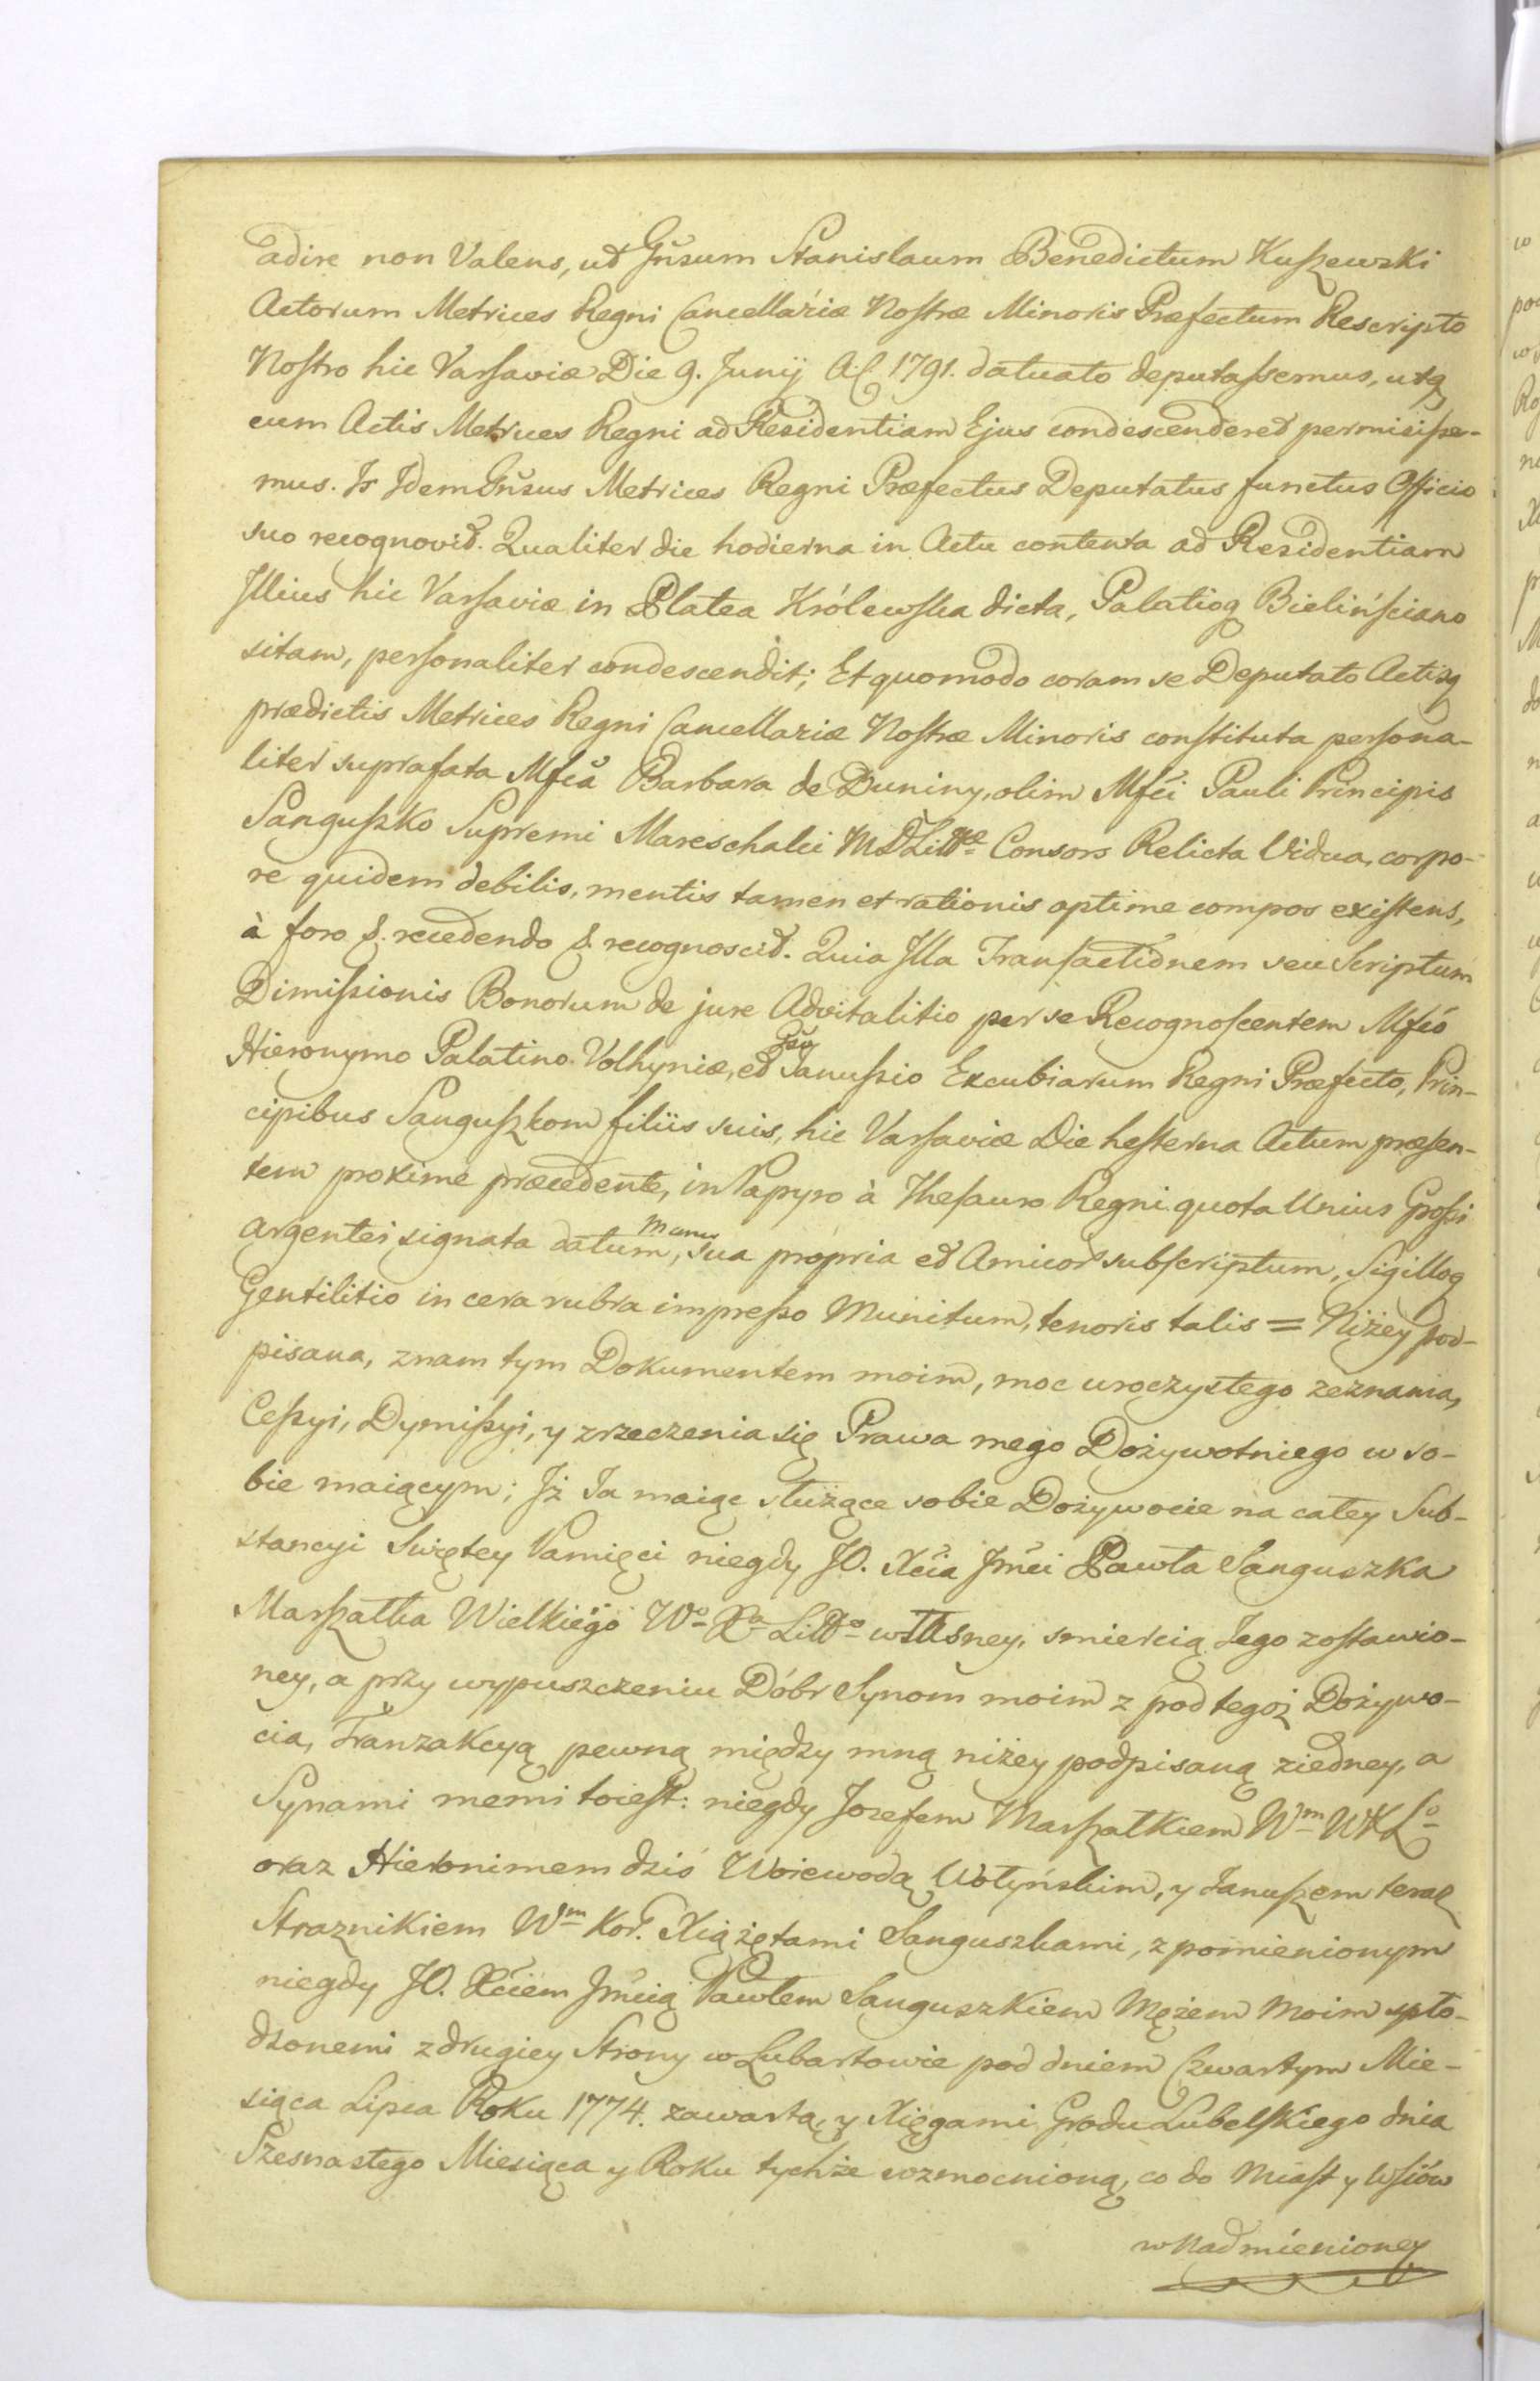 adire non Valens, ut Gnsum Stanislaum Benedictum Kuszewski
Actorum Metrices Regni Cancellariæ Nostræ Minoris Præfectum Rescripto
Nostro hic Varsaviæ Die 9. Junij A.C. 1791. datuato deputassemus, utq
cum Actis Metrices Regni ad Residentiam Ejus condescenderet permisisse-
mus. Is Idem Gnsus Metrices Regni Præfectus Deputatus functus Officio
suo recognovit. Qualiter die hodierna in Actu contenta ad Residentiam
Illius hic Varsaviæ in Platea Królewska dicta, Palatioq Bielińsciano
sitam, personaliter condescendit; Et quomodo coram se Deputato Actisq
prædictis Metrices Regni Cancellariæ Nostræ Minoris constituta persona-
liter suprafata Mfca Barbara de Duniny, olim Mfci Pauli Principis
Sanguszko Supremi Mareschalci M D Litt Consors Relicta Vidua, corpo-
re quidem debilis, mentis tamen et rationis optime compos existens,
à foro &. recedendo &. recognoscit. Quia Illa Transactionem seu Scriptum
Dimissionis Bonorum de jure Advitalitio per se Recognoscentem Mfco
Hieronymo Palatino Volhyniæ, et Janussio Excubiarum Regni Præfecto, Prin-
cipibus Sanguszkom filiis suis, hic Varsaviæ Die hesterna Actum præsen-
tem proxime præcedente, in Papyro à Thesauro Regni quota Unius Grossi
argentei signata datum, Manu sua propria et Amicor subscriptum, Sigilloq
Gentilitio in cera rubra impresso Munitum, tenoris talis = Niżey pod-
pisana, znam tym Dokumentem moim, moc uroczystego zeznania,
Cessyi, Dymissyi, y zrzeczenia się Prawa mego Dożywotniego w so-
bie maiącym; Iż Ja maiąc służące sobie Dożywocie na całey Sub-
stancyi Swiętey Pamięci niegdy JO. Xcia Jmci Pawła Sanguszka
Marszałka Wielkiego Wo Xa Litto własney, smiercią Jego zostawio-
ney, a przy wypuszczeniu Dóbr Synom moim z pod tegoż Dożywo-
cia, Tranzakcyą pewną między mną niżey podpisaną ziedney, a
Synami memi toiest: niegdy Jozefem Marszałkiem Wm WXLo
oraz Hieronimem dziś Woiewodą Wołyńskim, y Januszem teraz
Straznikiem Wm Kor. Xiążętami Sanguszkami, z pomienionym
niegdy JO. Xciem Jmcią Pawłem Sanguszkiem Mężem Moim spło-
dzonemi z drugiey Strony w Lubartowie pod dniem Czwartym Mie-
siąca Lipca Roku 1774. zawartą, y Xięgami Grodu Lubelskiego dnia
Szesnastego Miesiąca y Roku tychże wzmocnioną, co do Miast y Wsiów
w nadmienioney